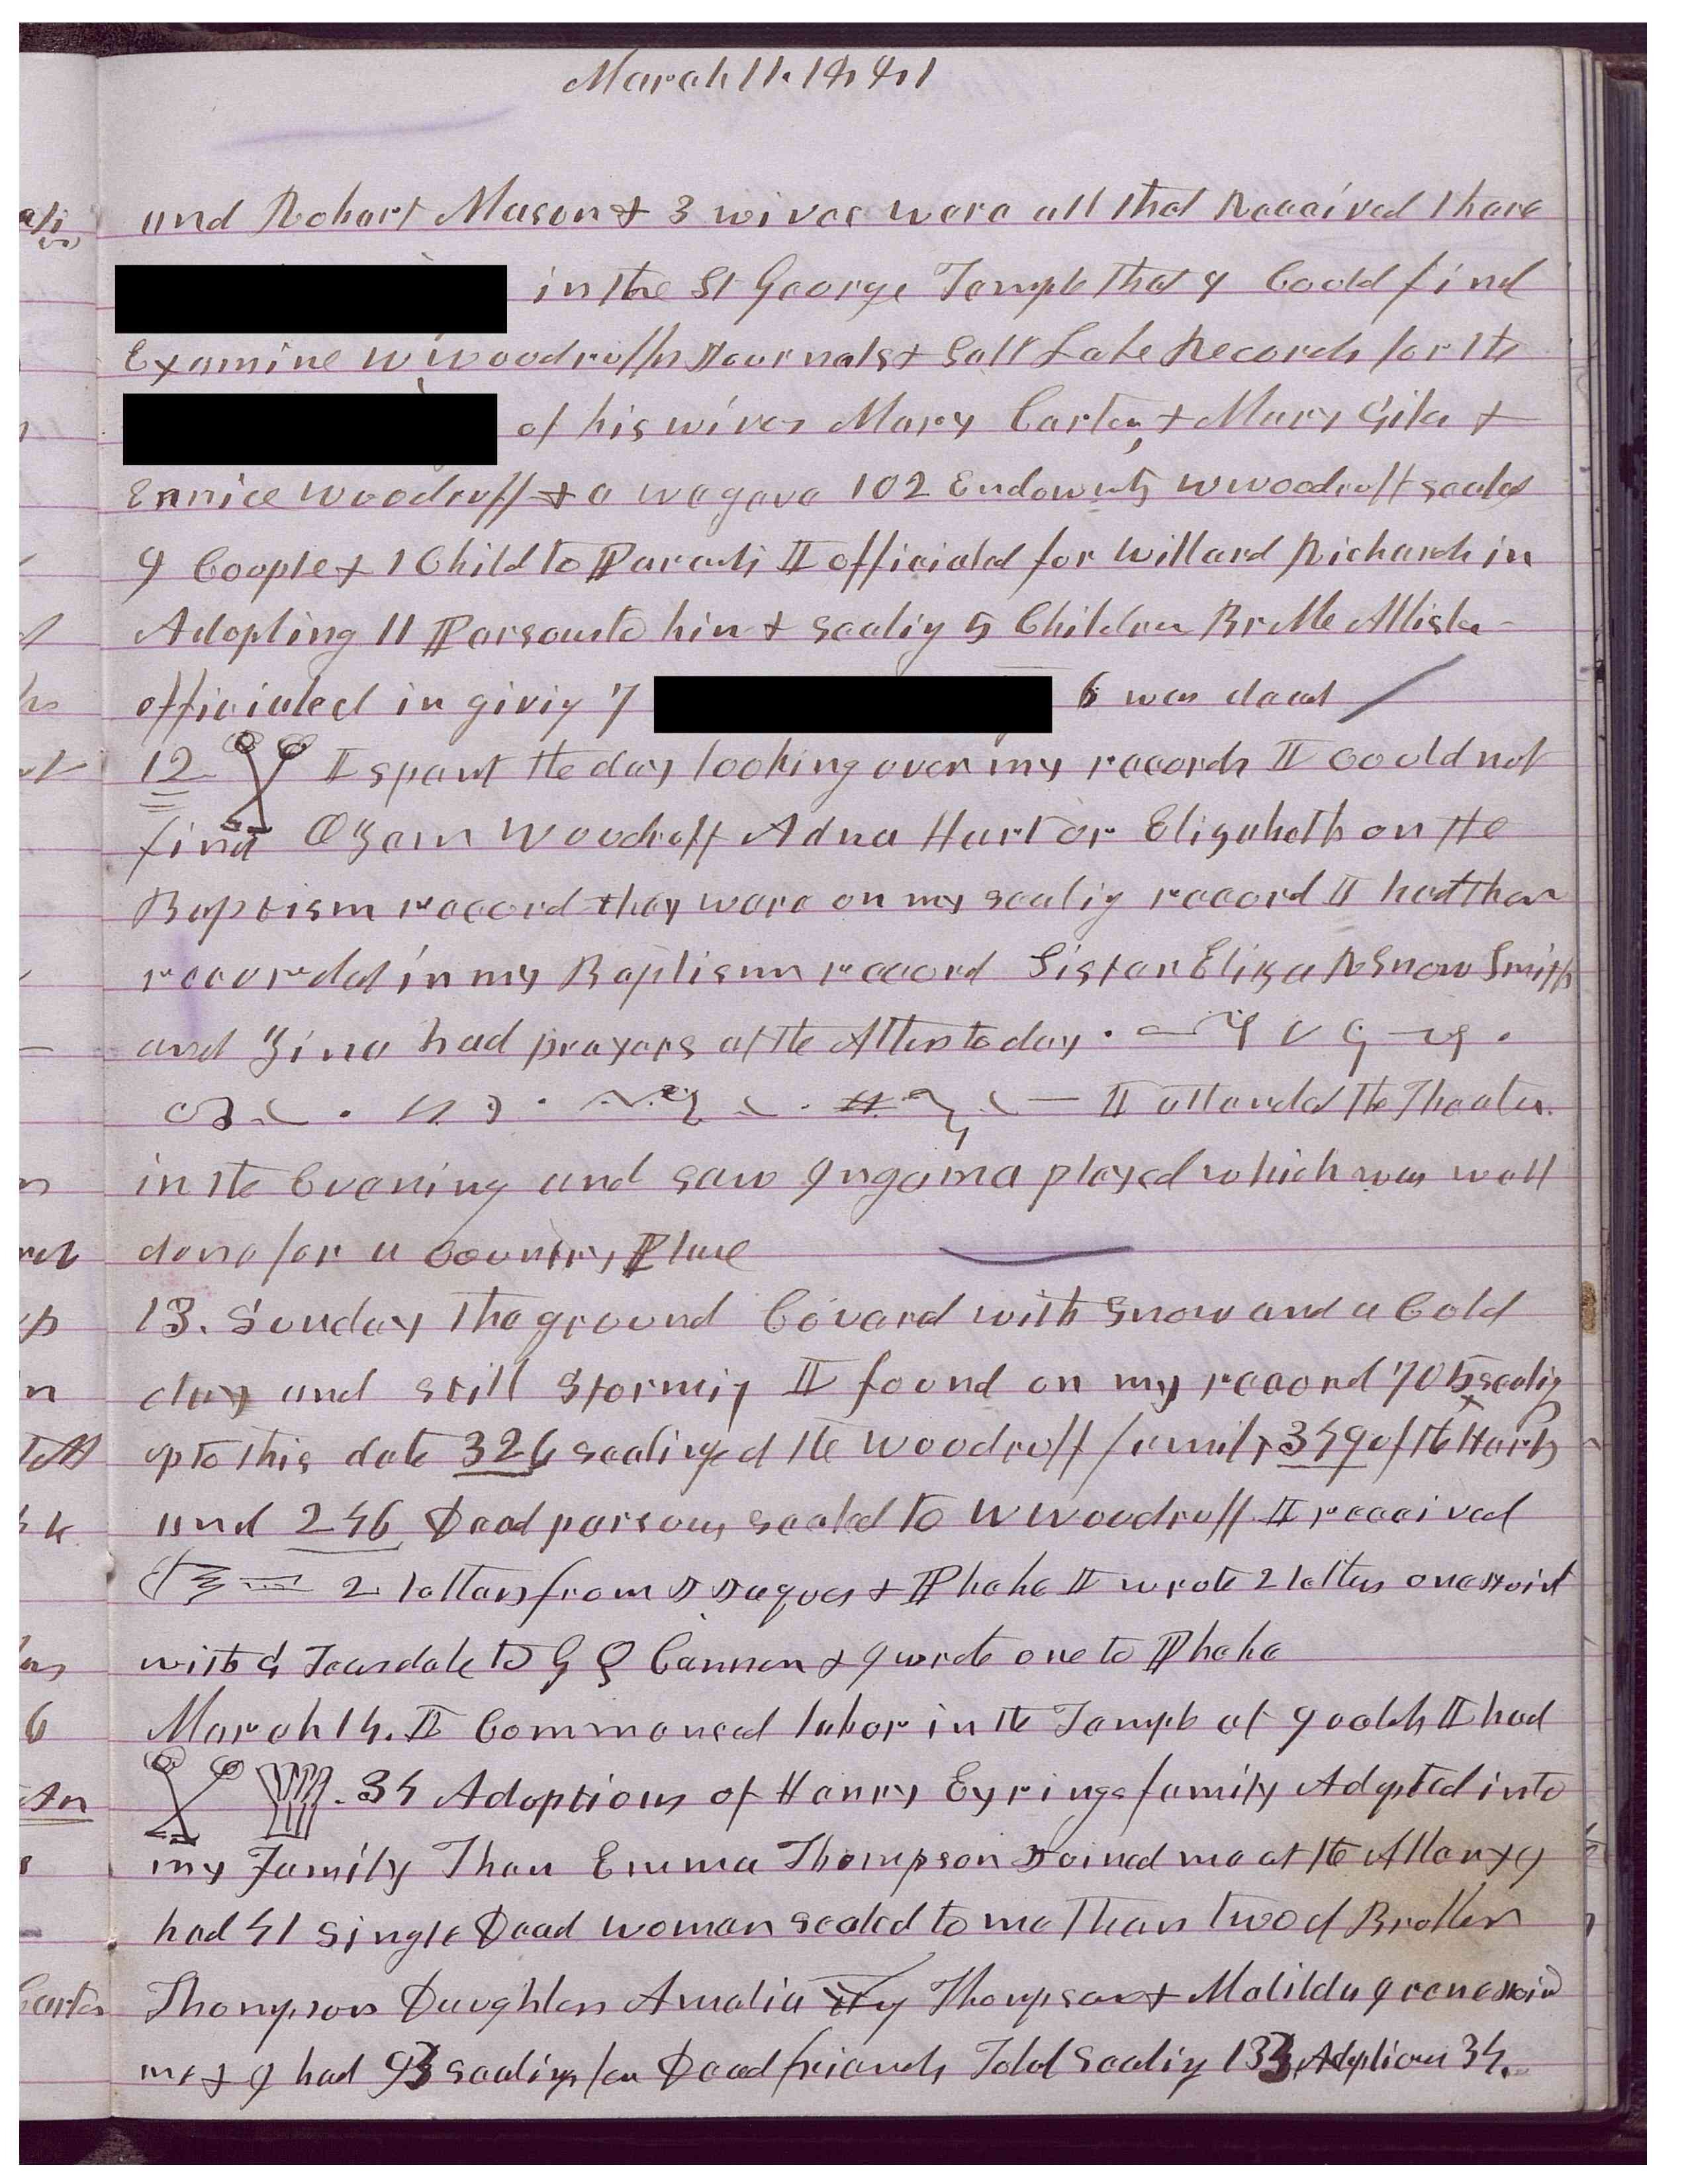 March 11. 1881
and Robart Mason & 3 wives were all that Received there
in the St George Temple that I Could find
Examine W Woodruffs Journals & Salt Lake Records for the
of his wives Mary Carter, & Mary Giles &
Eunice Woodruff & we gave 102 Endowmts W Woodruff sealed
9 Couple & 1 Child to Parents I officiated for Willard Richards in
Adopting 11 Persons to him & sealing 5 Children Br Mc Allister
officiated in giving 7 6 was dead
12 I spent the day looking over my records I could not
find Ozem Woodruff Adna Hart or Elizabeth on the
Baptism record they were on my sealig record I had them
recorded in my Baptism record Sister Eliza R Snow Smith
and Zina had prayers at the Alter to day
I attended the Theater
in the Evening and saw Ingoma played which was well
done for a Country Place
13. Sunday The ground Coverd with Snow and a Cold
day and still stormig I found on my record 705 sealig
up to this date 326 sealings of the Woodruff family 349 of the Harts
and 246 Dead persons sealed to W Woodruff I received
2 letters from J Jaques & Phebe I wrote 2 letters one Joint
with G Teasdale to G Q Cannon & I wrote one to Phebe
March 14. I Commenced labor in the Temple at 9 oclok I had
34 Adoptions of Henry Eyrings family Adopted into
my Family Then Emma Thompson Joined me at the Altar & I
had 41 single Dead women sealed to me Then two of Brother
Thompsons Daughters Amelia Thompson & Matilda Irene Join
me & I had 93 sealings for Dead friends Total Sealig 133 Adoptions 34.